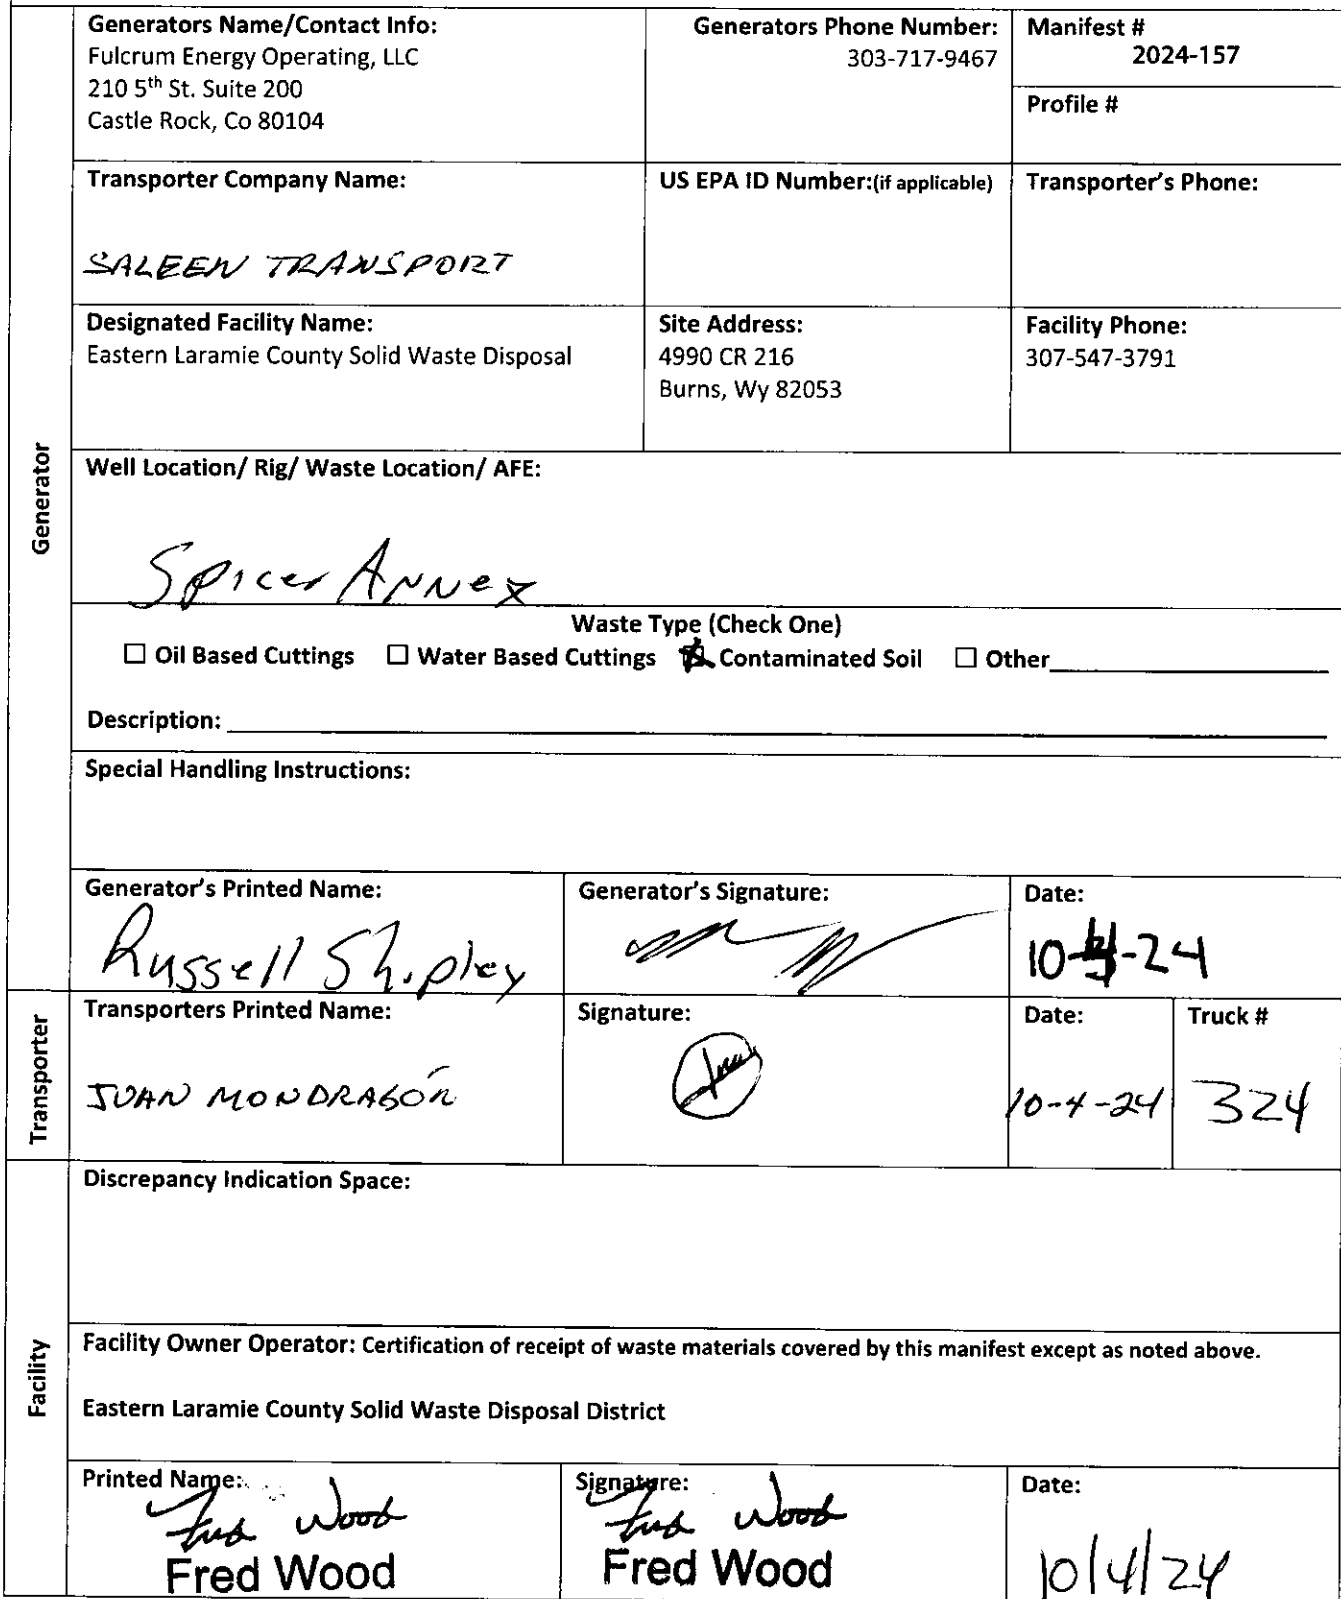 Generators Name/Contact Info:
Fulcrum Energy Operating, LLC
210 5th St. Suite 200
Castle Rock, Co 80104
Generators Phone Number:
303-717-9467
Manifest #
2024-157
Profile #
Transporter Company Name:
SALEEN TRANSPORT
US EPA ID Number:(if applicable)
Transporter's Phone:
Designated Facility Name:
Eastern Laramie County Solid Waste Disposal
Site Address:
4990 CR 216
Burns, Wy 82053
Facility Phone:
307-547-3791
Generator
Well Location/ Rig/ Waste Location/ AFE:
Spicer Annex
Waste Type (Check One)
☐ Oil Based Cuttings ☐ Water Based Cuttings ☒ Contaminated Soil ☐ Other
Description:
Special Handling Instructions:
Generator's Printed Name:
Russell Shipley
Generator's Signature:
Date:
10-4-24
Transporter
Transporters Printed Name:
JUAN MONDRAGÓn
Signature:
Date:
10-4-24
Truck #
324
Facility
Discrepancy Indication Space:
Facility Owner Operator: Certification of receipt of waste materials covered by this manifest except as noted above.
Eastern Laramie County Solid Waste Disposal District
Printed Name:
Fred Wood
Fred Wood
Signature:
Fred Wood
Fred Wood
Date:
10/4/24